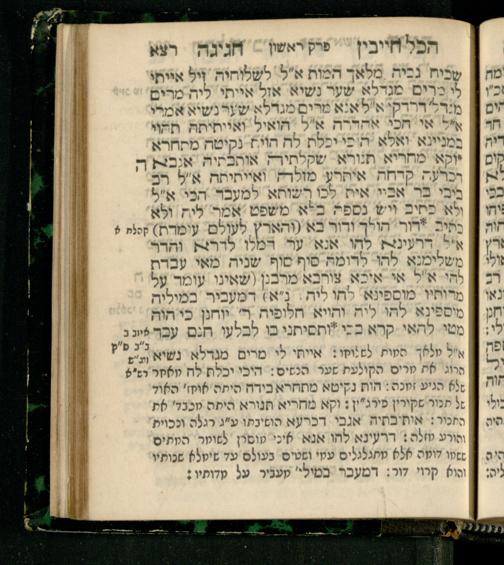 הכל חייבין פרק ראשון חגיגה רצא
שכיח גביה מלאך המות א"ל לשלוחיה זיל אייתי
לי מרים מגדלא שער נשיא אזל אייתי ליה מרים
מגדל דרדקי א"ל אנא מרים מגדלא שער נשיא אמרי
א"ל אי הכי אהדרה א"ל הואיל ואייתיתה תהוי
במניינא ואלא היכי יכלת לה הות נקיטא מתחרא
וקא מחריא תנורא שקלתיה אותבתיה אגבא
דכרעה קדחה איתרע מזלה ואייתיתה א"ל רב
ביבי בר אביי אית לכו רשותא למעבד הכי א"ל
ולא כתיב ויש נספה בלא משפט אמר ליה ולא
כתיב *דור הולך ודור בא (והארץ לעולם עומדת) קהלת א
א"ל דרעינא להו אנא עד דמלו לדרא והדר
משלימנא להו לדומה סוף סוף שניה מאי עבדת
להו א"ל אי איכא צורבא מרבנן (שאינו עומד על
מדותיו מוספינא להו ליה. נ"א) דמעביר במיליה
מוספינא להו ליה והויא חלופיה ר' יוחנן כי הוה
מטו להאי קרא בכי *ותסיתני בו לבלעו חנם עבד איוב ב
א"ל מלאך המות לשלוחו: אייתי לי מרים מגדלא נשיא
הרוג את מרים הקולעת שער הנשים: היכי יכלת לה מאחר
שלא הגיע זמנה: הות נקיטא מתחרא בידה היתה אוחז' האוד
של תנור שקורין פורג"ון: וקא מחריא תנורא היתה מכבד' את
התנור: אותבתיה אגבי דכרעא הושיבתו ע"ג רגלה ונכוית
והורע מזלה: דרעינא להו אנא איני מוסרן לשומר המתים
ששמו דומה אלא מתגלגלים עמי ושטים בעולם עד שימלאו שנותיו
והוא קרוי דור: דמעבר במילי' מעביר על מדותיו: